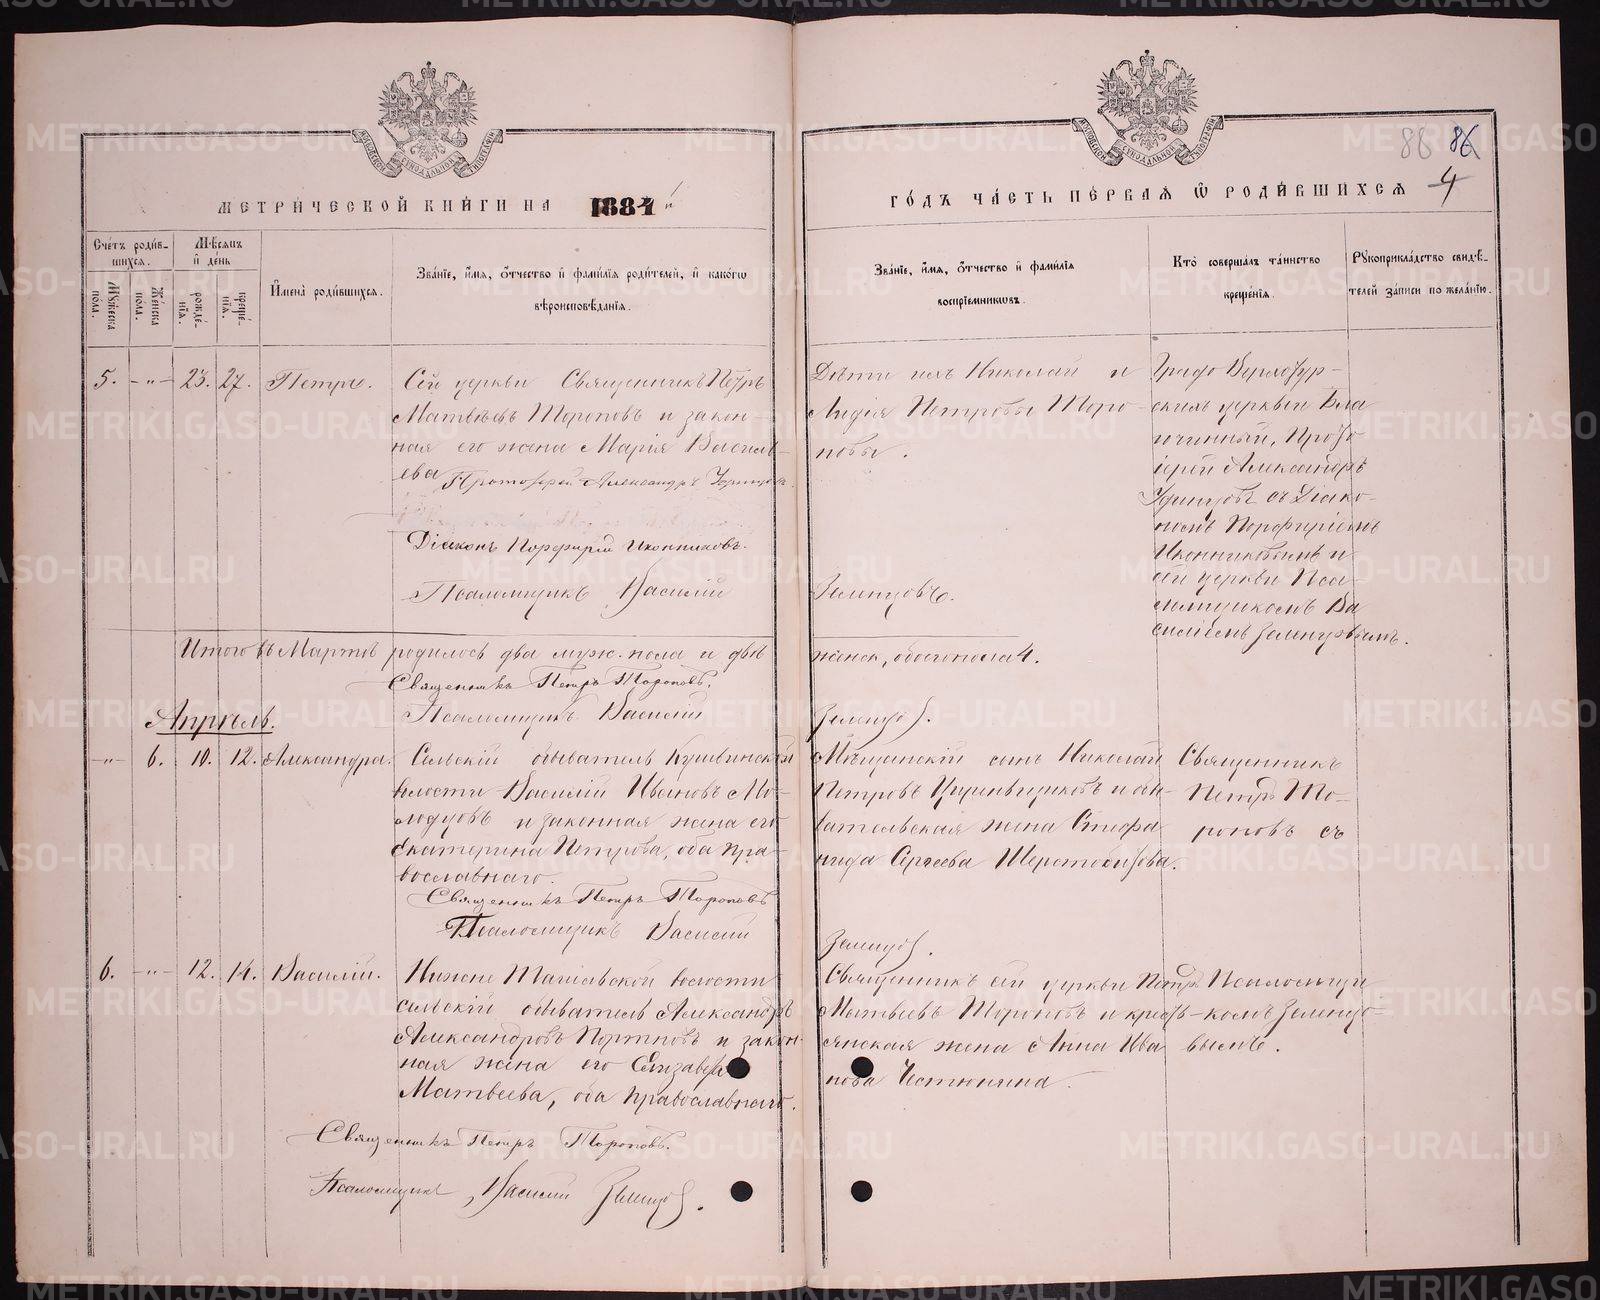 МЕТРИЧЕСКОЙ КНИГИ НА 1884 й
ГОДЪ ЧАСТЬ ПЕРВАЯ Ѿ РОДИВШИХСЯ
86 86
4
Счетъ родив-
шихся.
Мѣсяцъ
и день
Мужеска пола.
Женска пола.
рожде-
нія.
креще-
нія.
Имена родившихся.
Званіе, имя, отчество и фамилія родителей, и какогѡ
вѣроисповѣданія.
Званіе, имя, отчество и фамилія
воспріемниковъ.
Кто совершалъ таинство
крещенія.
Рукоприкладство свидѣ-
телей записи по желанію.
5. - „ - 23. 27. Петръ.
Сей церкви Священникъ Петръ
Матвѣевъ Тороповъ и закон-
ная его жена Марія Василь-
ева
Протоіерей Александръ
Діаконъ Порфирій Иконниковъ.
Псаломщикъ Василій
Дѣти ихъ Николай и
Лидія Петровы Торо-
повы.
Земляновъ.
Градо Верхотур-
скихъ церквей Бла
гочинный, Прото
іерей Александръ
съ Діако-
номъ Порфиріемъ
Иконниковымъ и
сей церкви Пса-
ломщикомъ Ва
силіемъ
Итого въ Мартѣ родилось два муж. пола и двѣ
женск, обоего пола 4.
Священникъ Петръ Тороповъ.
Псаломщикъ Василій
Апрѣль.
- „ - 6. 10. 12. Александра.
Сельскій обыватель Кушвинской
волости Василій Ивановъ Мо-
лодцовъ и законная жена его
Екатерина Петрова, оба пра-
вославнаго.
Священникъ Петръ Тороповъ
Псаломщикъ Василій
Мѣщанскій сынъ Николай
Петровъ и обы-
вательская жена Стефа
нида Сергѣева Шерстобитова.
Священникъ
Петръ То-
роповъ съ
6. - „ - 12. 14. Василій.
Нижне Тагильской волости
сельскій обыватель Александръ
Александровъ Портновъ и закон-
ная жена его Елизавета
Матвѣева, оба православнаго.
Священникъ Петръ Тороповъ.
Псаломщикъ Василій
Священникъ сей церкви Петръ
Матвѣевъ Тороповъ и кресть-
янская жена Анна Ива
нова Честюнина.
Псаломщи
комъ
вымъ.